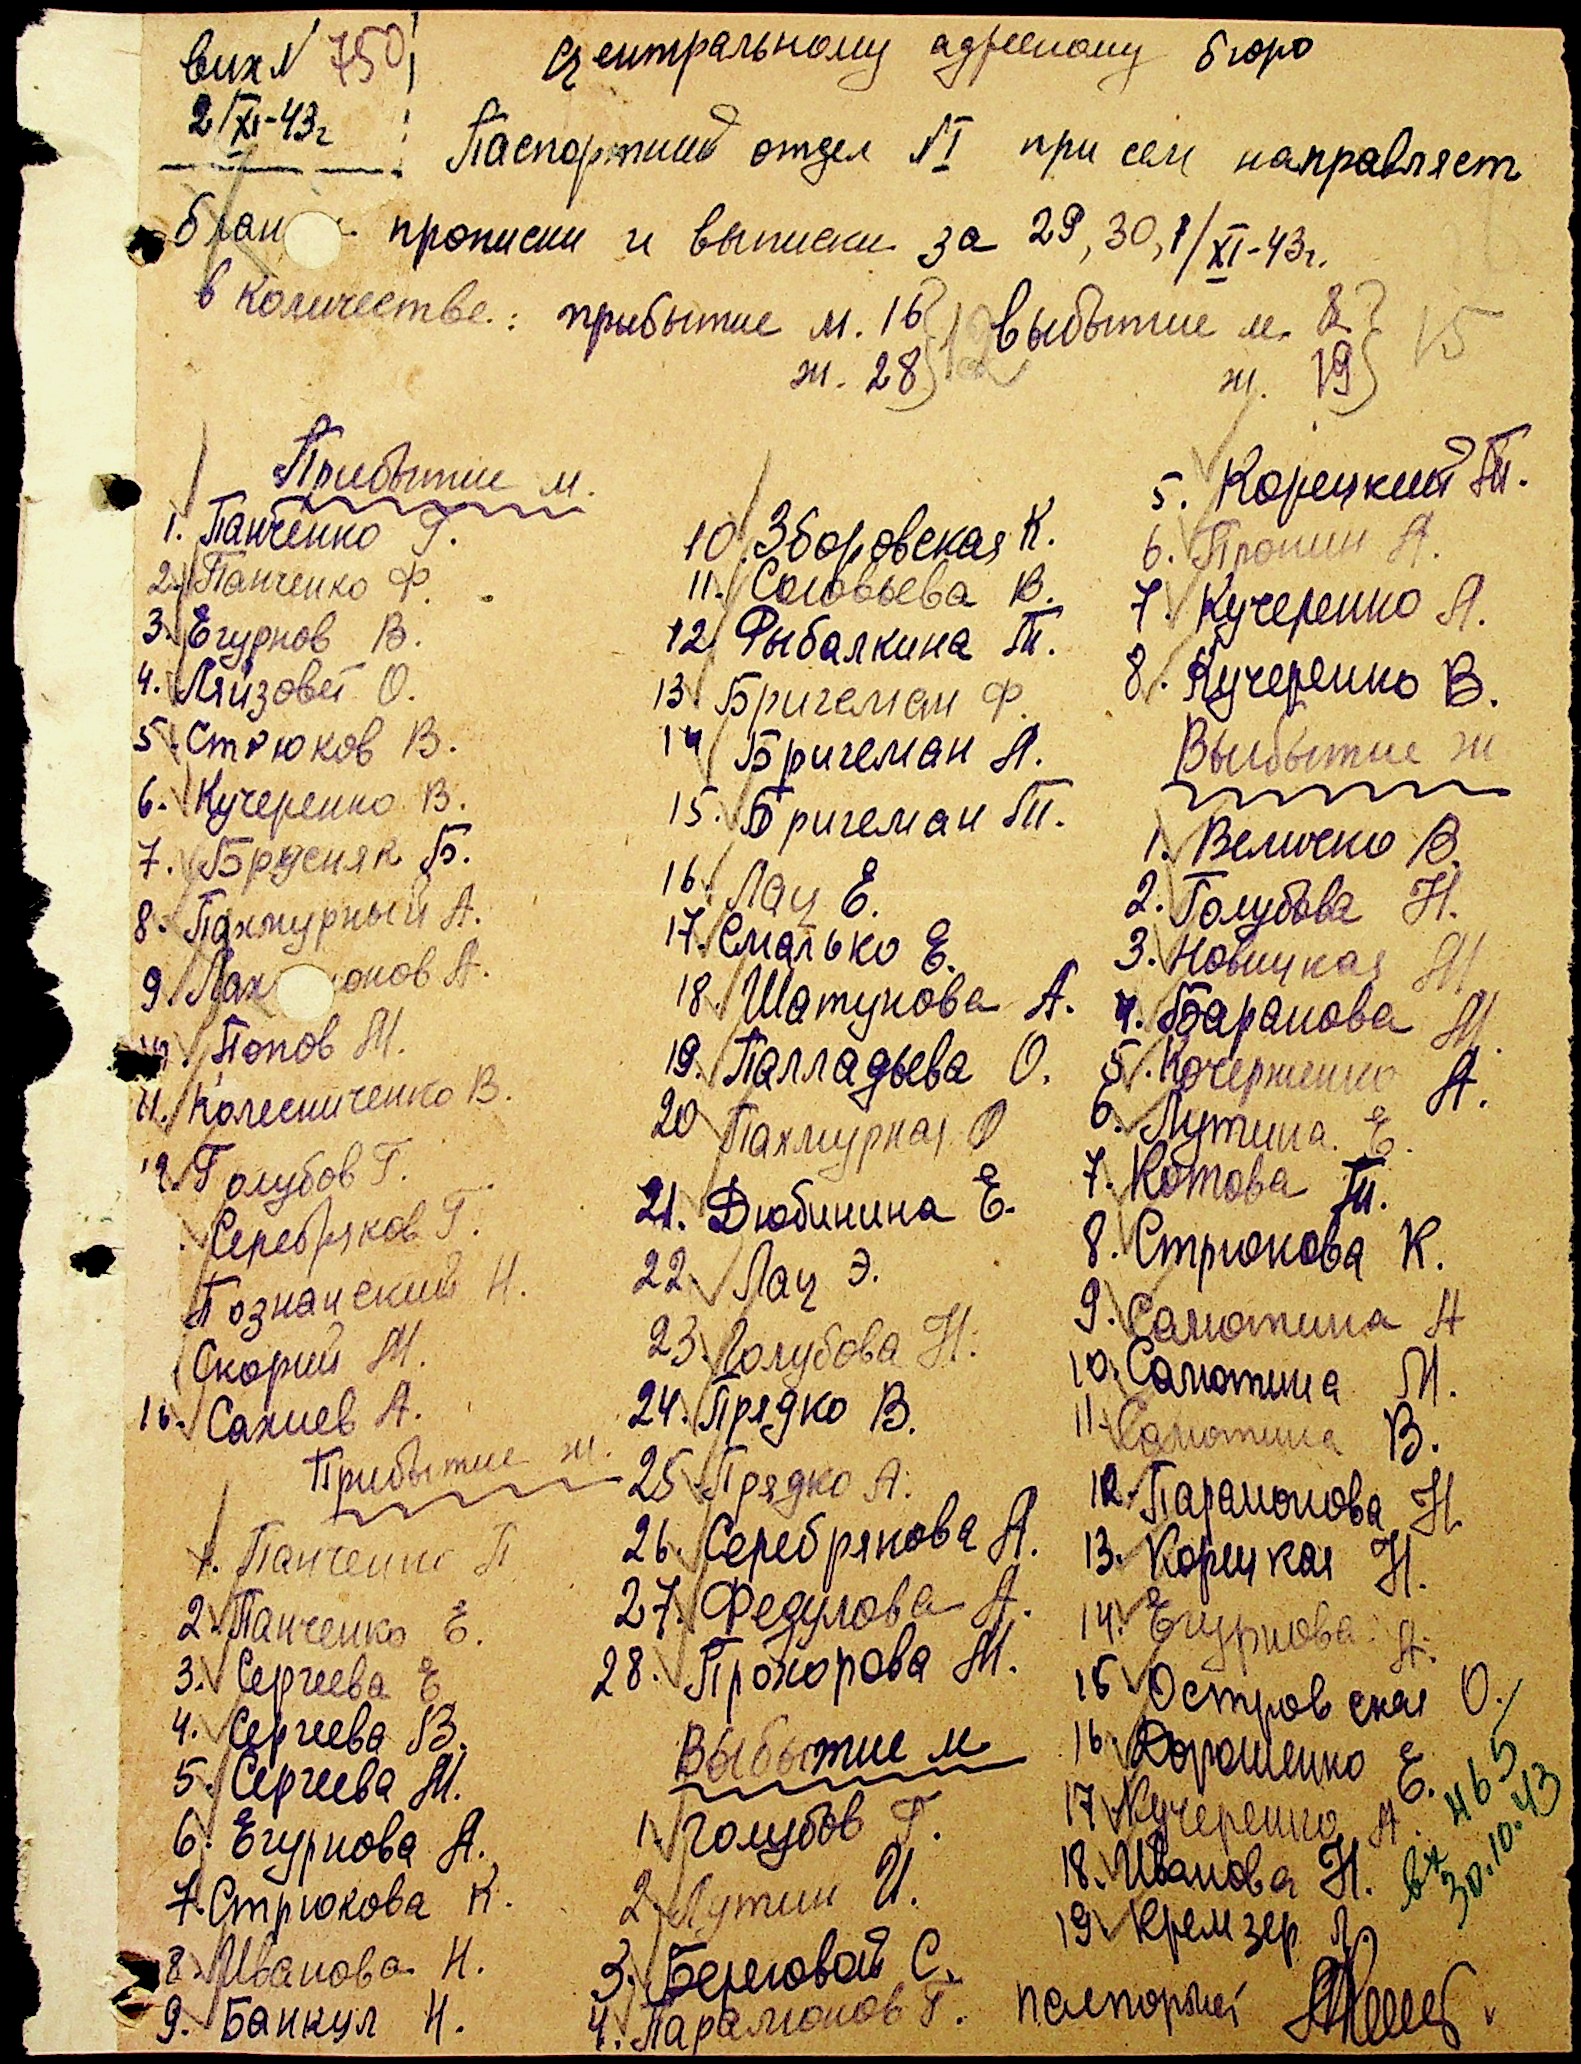 вих N 750
2/XI-43г
Центральному адресному бюро
Паспортний отдел N I при сем направляет
блан прописки и выписки за 29, 30, 1/XI-43г.
в количестве: прибытие м. 16 выбытие м. 8
ж. 28 ж. 19
12 15
Прибытие м.
1. Панченко Г.
2. Панченко Ф.
3. Егурнов В.
4. О.
5. Стрюков В.
6. Кучеренко В.
7. Брусняк Б.
8. Пахмурный А.
9. А.
10. Попов М.
11. Колесниченко В.
12. Голубов Г.
Серебряков Г.
Познанский Н.
Скорий М.
16. Сахиев А.
Прибытие ж.
1. Панченко П
2. Панченко Е.
3. Сергеева Е
4. Сергеева В.
5. Сергеева М.
6. Егурнова А.
7. Стрюкова К.
8. Иванова Н.
9. Банкул Н.
10. Зборовская К.
11. Соловьева В.
12. Рыбалкина Т.
13. Бригеман Ф.
14 Бригеман А.
15. Бригеман Т.
16. Лац Е.
17. Смалько Е.
18. Шатунова А.
19. Палладьева О.
20 Пахмурная О
21. Дюбинина Е.
22. Лац Э.
23. Голубова Н.
24. Прядко В.
25. Прядко А.
26. Серебрякова А.
27. Федулова А.
28. Прохорова М.
Выбытие м
1. Голубов Г.
2. Лутин И.
3. Береговой С.
4. Парамонов Г.
5. Корецкий Т.
6. Пронин А.
7. Кучеренко А.
8. Кучеренко В.
Выбытие ж
1. Величко В.
2. Голубова Н.
3. Новицкая М
4. Баранова М.
5. Кочерженко А.
6. Лутина Е.
7. Котова Т.
8. Стрюкова К.
9. Самотина А
10. Самотина М.
11. Самотина В.
12. Парамонова Н
13. Корецкая Н.
14. Егурнова А.
15 Островская О.
16. Дорошенко Е.
17 Кучеренко А.
18. Иванова Н.
19 Кремзер Л.
вх 465
30.10.43